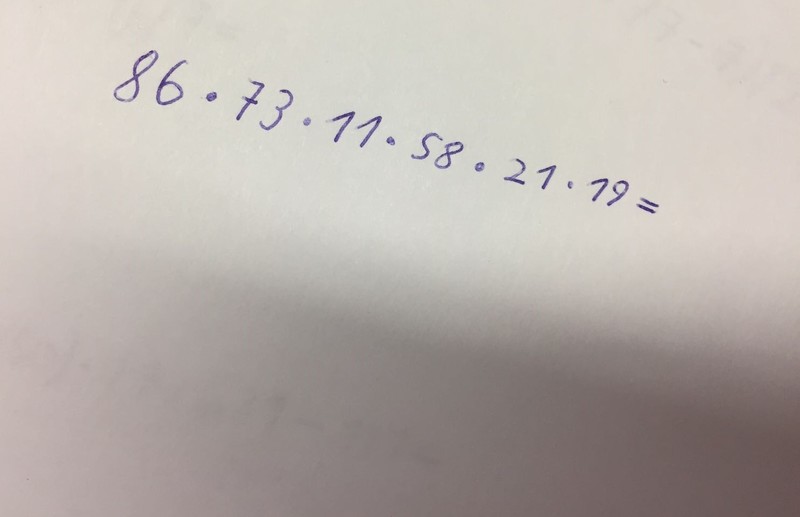 86 · 73 · 11 · 58 · 21 · 19 =